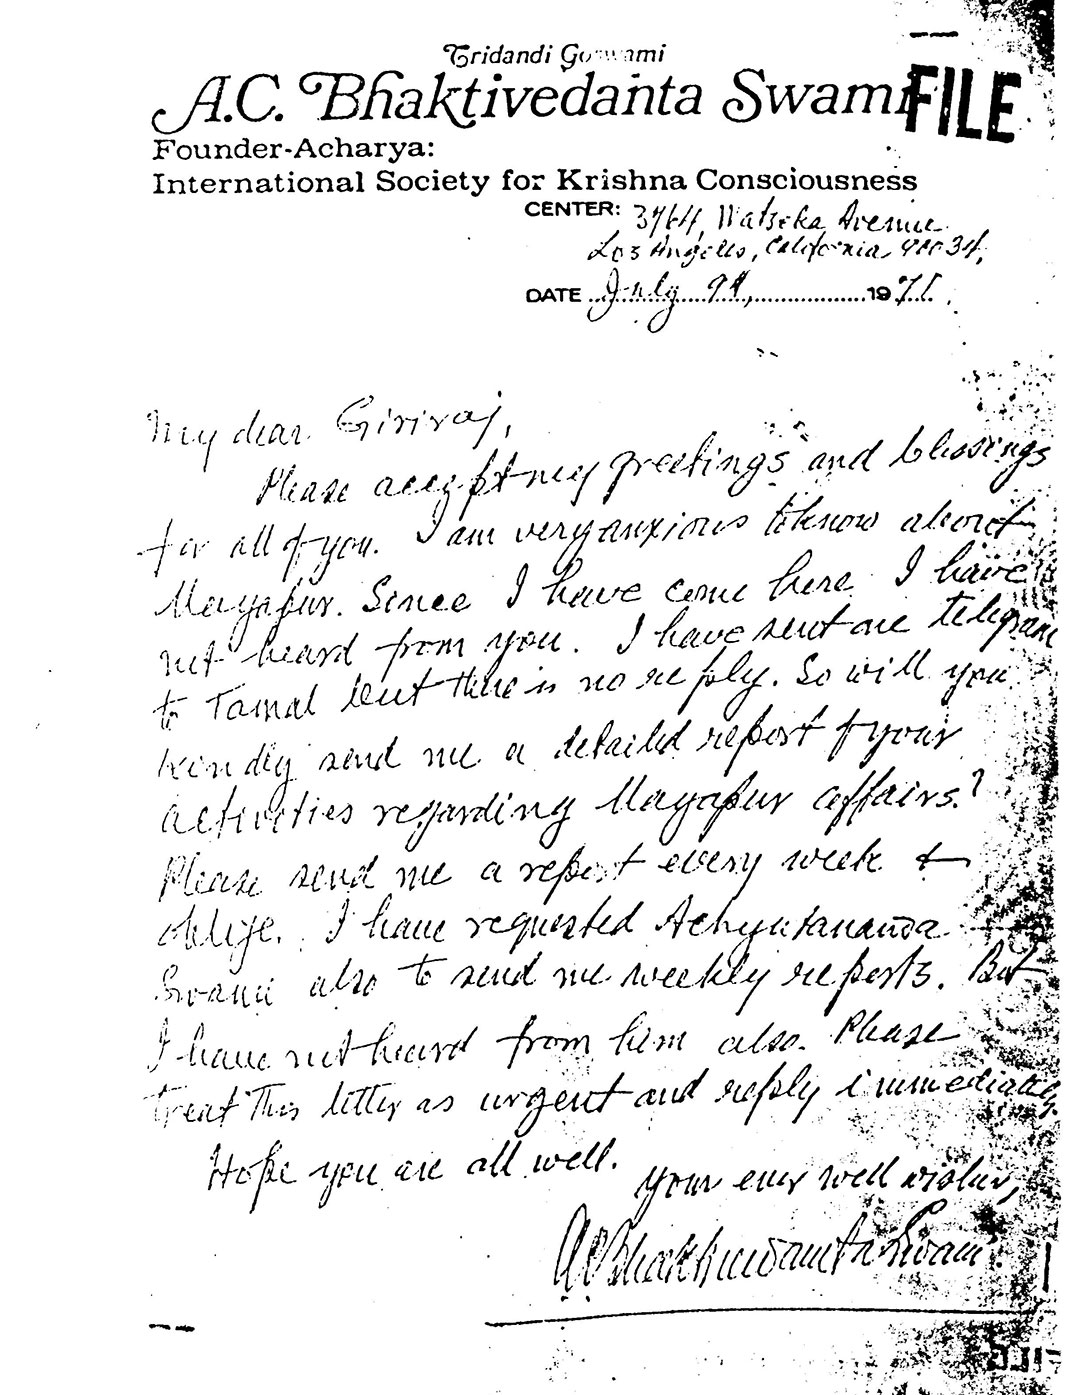 Tridandi Goswami
A.C. Bhaktivedanta Swami
FILE
Founder-Acharya:
International Society for Krishna Consciousness
CENTER: 3764, Watseka Avenue
Los Angeles, California 90034,
DATE July 9th, 1971.
My dear Giriraj,
Please accept my greetings and blessings
for all of you. I am very anxious to know about
Mayapur. Since I have come here I have
not heard from you. I have sent one telegram
to Tamal but there is no reply. So will you
kindly send me a detailed report of your
activities regarding Mayapur affairs?
Please send me a report every week &
oblige. I have requested Achyutananda
Swami also to send me weekly reports. But
I have not heard from him also. Please
treat this letter as urgent and reply immediately.
Hope you are all well.
Your ever well wisher,
A.C. Bhaktivedanta Swami